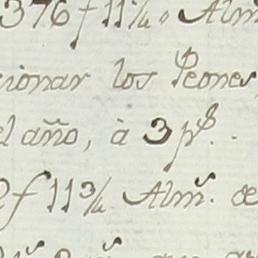 376 f 11 1/4 Alm
cionar los Peones
el año, à 3 p.s
2 f 11 3/4 Alm.s de